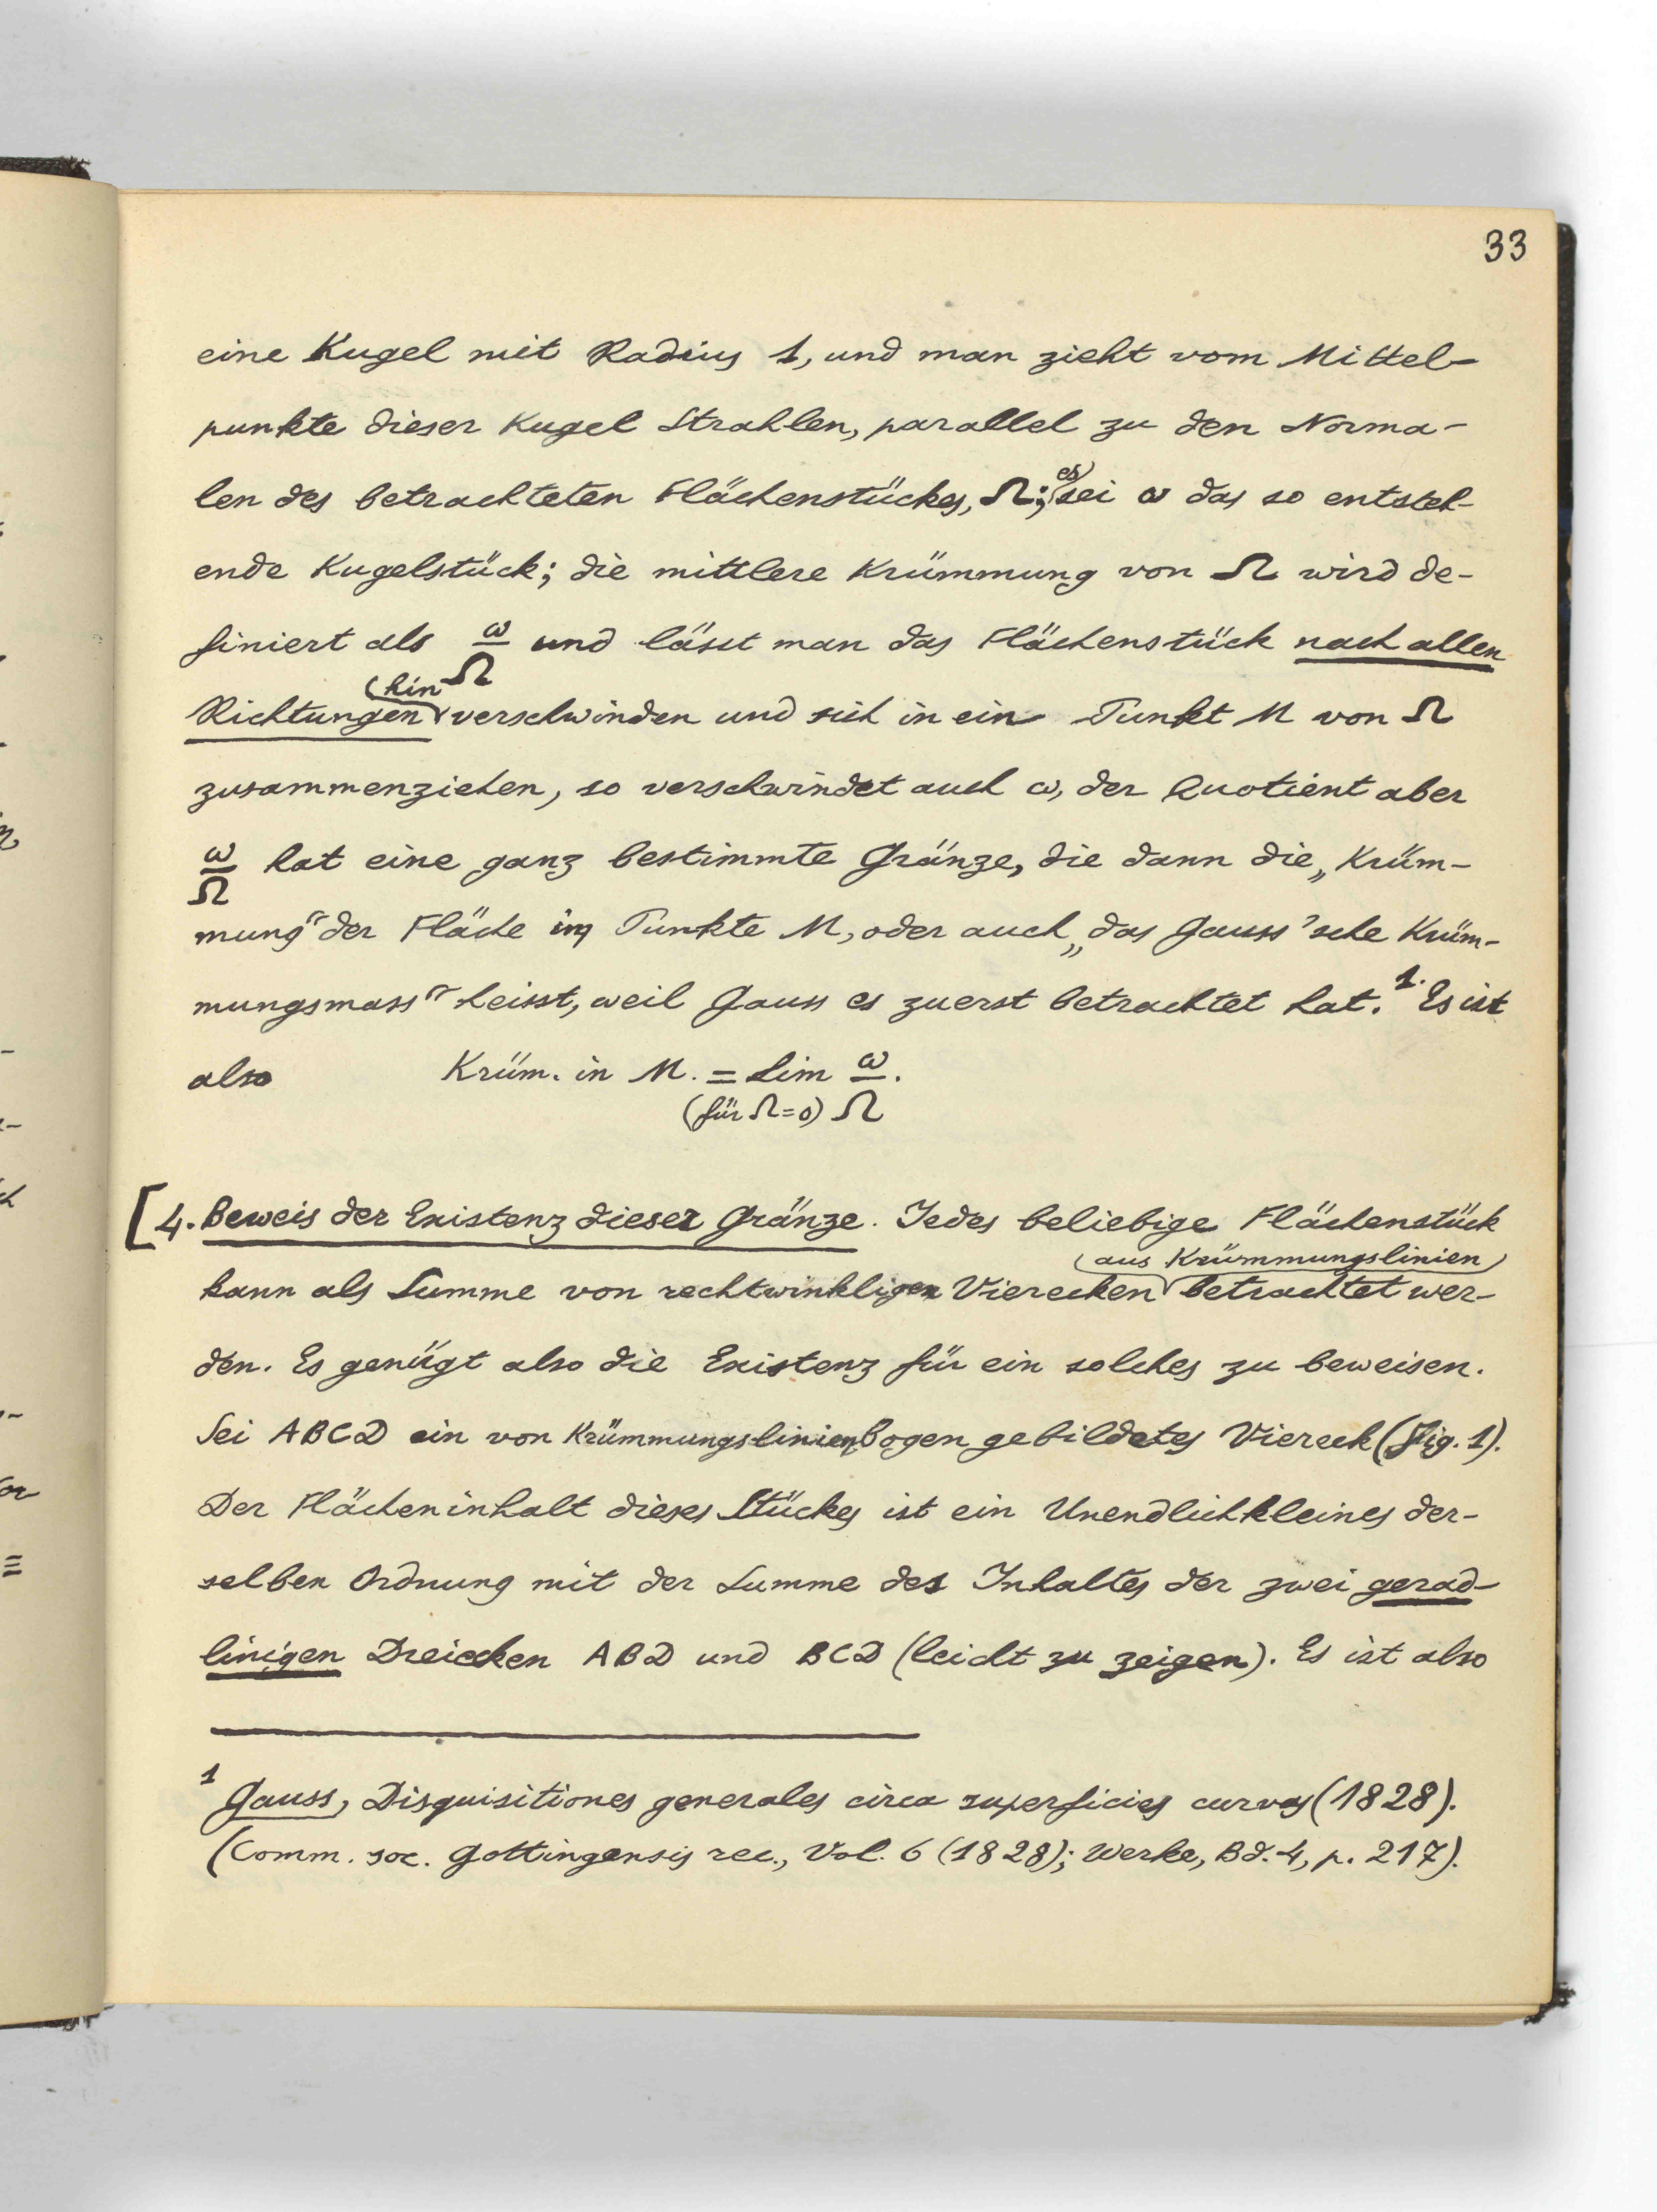 33
eine Kugel mit Radius 1, und man zieht vom Mittel-
punkte dieser Kugel Strahlen, parallel zu den Norma-
len des betrachteten Flächenstückes, Ω; es sei ω das so entsteh-
ende Kugelstück; die mittlere Krümmung von Ω wird de-
finiert als ω/Ω und lässt man das Flächenstück nach allen
Richtungen hin verschwinden und sich in ein Punkt M von Ω
zusammenziehen, so verschwindet auch ω, der Quotient aber
ω/Ω hat eine ganz bestimmte Gränze, die dann die „Krüm-
mung" der Fläche im Punkte M, oder auch „das Gauss'sche Krüm-
mungsmass" heisst, weil Gauss es zuerst betrachtet hat.¹ Es ist
also Krüm. in M. = Lim ω/Ω.
(für Ω=0)
[4. Beweis der Existenz dieser Gränze. Jedes beliebige Flächenstück
kann als Summe von rechtwinkligen Vierecken aus Krümmungslinien betrachtet wer-
den. Es genügt also die Existenz für ein solches zu beweisen.
Sei ABCD ein von Krümmungslinien Bogen gebildetes Viereck (Fig. 1).
Der Flächeninhalt dieses Stückes ist ein Unendlichkleines der-
selben Ordnung mit der Summe des Inhaltes der zwei gerad-
linigen Dreiecken ABD und BCD (leicht zu zeigen). Es ist also
1 Gauss, Disquisitiones generales circa superficies curvas (1828).
(Comm. soc. Gottingensis rec., Vol. 6 (1828); Werke, Bd. 4, p. 217).